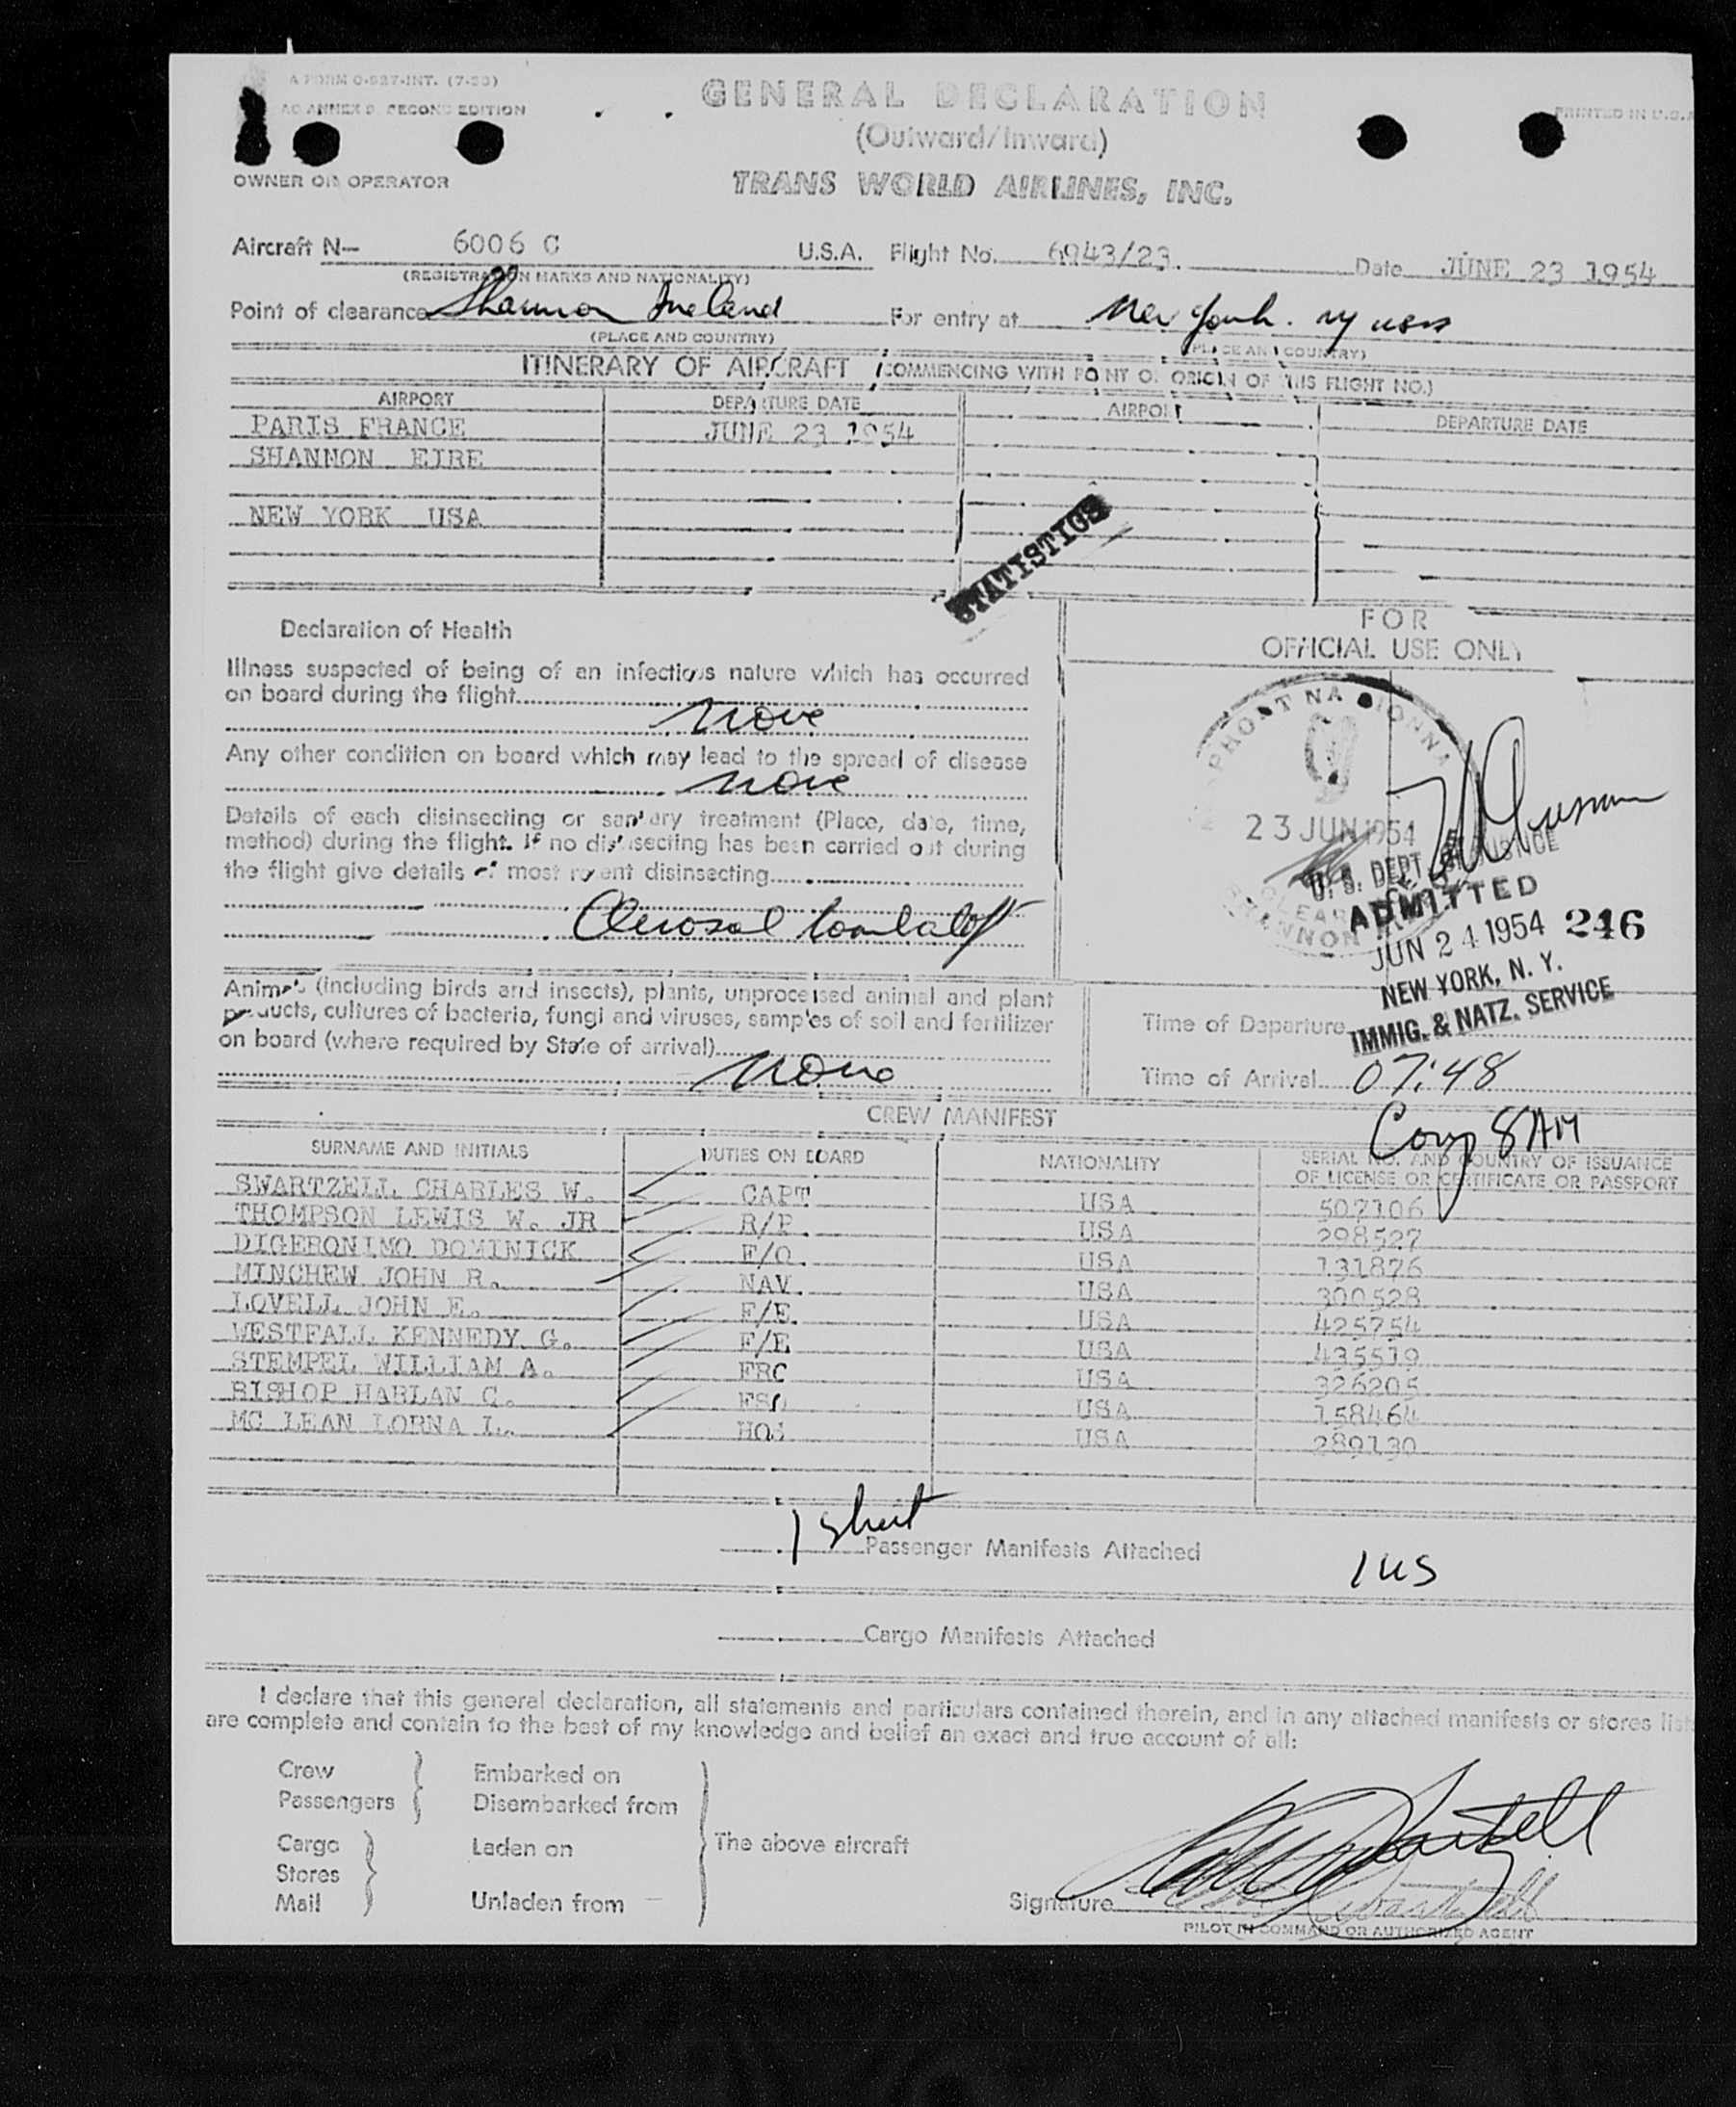 A FORM O-527-INT. (7-53)
AO ANNEX 9 SECOND EDITION
PRINTED IN U.S.A
GENERAL DECLARATION
(Outward/Inward)
OWNER OR OPERATOR
TRANS WORLD AIRLINES, INC.
Aircraft N— 6006 C U.S.A. Flight No. 6943/23 Date JUNE 23 1954
(REGISTRATION MARKS AND NATIONALITY)
Point of clearance Shannon Ireland For entry at New York. ny usa
(PLACE AND COUNTRY) (PLACE AND COUNTRY)
ITINERARY OF AIRCRAFT (COMMENCING WITH POINT OF ORIGIN OF THIS FLIGHT NO.)
AIRPORT DEPARTURE DATE AIRPORT DEPARTURE DATE
PARIS FRANCE JUNE 23 1954
SHANNON EIRE
NEW YORK USA
STATISTICS
Declaration of Health
Illness suspected of being of an infectious nature which has occurred
on board during the flight
None
Any other condition on board which may lead to the spread of disease
None
Details of each disinsecting or sanitary treatment (Place, date, time,
method) during the flight. If no disinsecting has been carried out during
the flight give details of most recent disinsecting
Aerosol
FOR
OFFICIAL USE ONLY
23 JUN 1954
SHANNON
U. S. DEPT. OF JUSTICE
ADMITTED
JUN 24 1954 246
NEW YORK, N. Y.
IMMIG. & NATZ. SERVICE
Animals (including birds and insects), plants, unprocessed animal and plant
products, cultures of bacteria, fungi and viruses, samples of soil and fertilizer
on board (where required by State of arrival)
None
Time of Departure
Time of Arrival 07:48
Comp 8AM
CREW MANIFEST
SURNAME AND INITIALS DUTIES ON BOARD NATIONALITY SERIAL NO. AND COUNTRY OF ISSUANCE
OF LICENSE OR CERTIFICATE OR PASSPORT
SWARTZELL CHARLES W. CAPT USA 507106
THOMPSON LEWIS W. JR R/P USA 298527
DIGERONIMO DOMINICK F/O USA 131876
MINCHEW JOHN R. NAV USA 300528
LOVELL JOHN E. F/E USA 425754
WESTFALL KENNEDY G. F/E USA 435519
STEMPEL WILLIAM A. FRC USA 326205
BISHOP HARLAN C. FSO USA 158464
MC LEAN LORNA L. HOS USA 289130
1 sheet Passenger Manifests Attached
1 US
Cargo Manifests Attached
I declare that this general declaration, all statements and particulars contained therein, and in any attached manifests or stores list
are complete and contain to the best of my knowledge and belief an exact and true account of all:
Crew Embarked on
Passengers Disembarked from
Cargo Laden on The above aircraft
Stores
Mail Unladen from
Signature
PILOT IN COMMAND OR AUTHORIZED AGENT